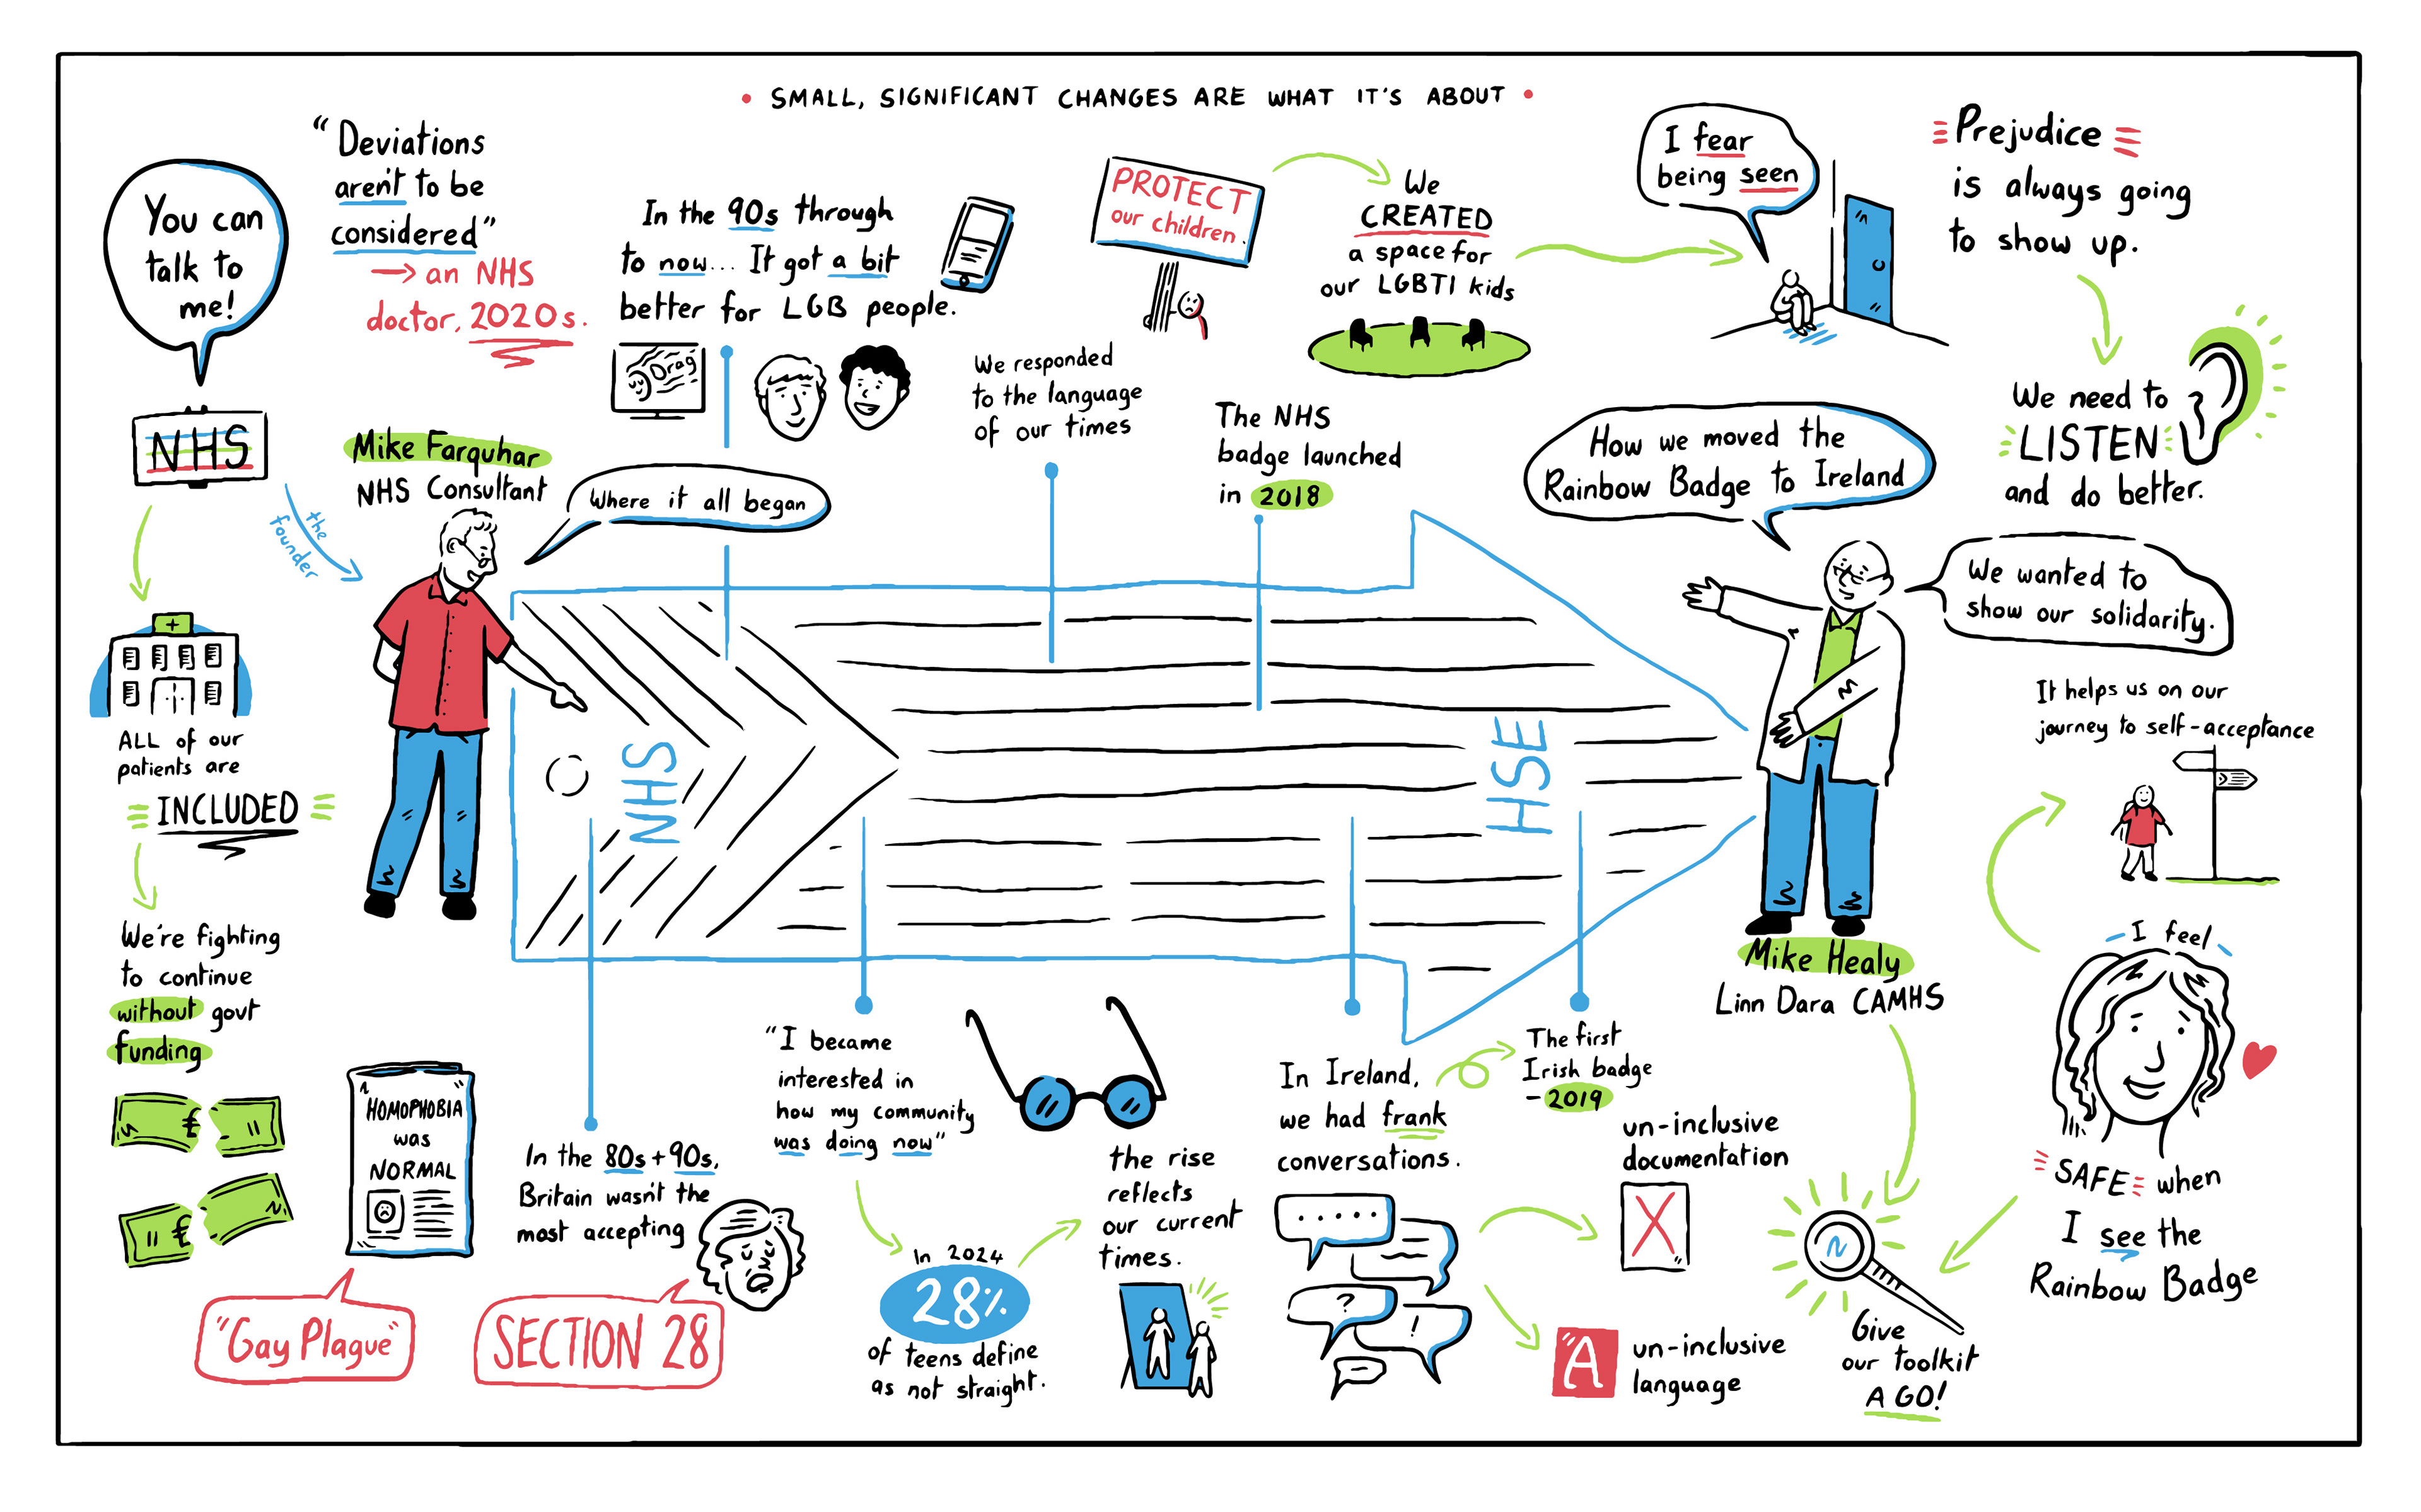 • SMALL, SIGNIFICANT CHANGES ARE WHAT IT'S ABOUT •
You can
talk to
me!
NHS
the
founder
ALL of our
patients are
INCLUDED
We're fighting
to continue
without govt
funding
£
£
"Deviations
aren't to be
considered"
→ an NHS
doctor, 2020s.
Mike Farquhar
NHS Consultant
Where it all began
In the 90s through
to now... It got a bit
better for LGB people.
Drag
We responded
to the language
of our times
PROTECT
our children.
We
CREATED
a space for
our LGBTI kids
The NHS
badge launched
in 2018
I fear
being seen
Prejudice
is always going
to show up.
We need to
LISTEN
and do better.
How we moved the
Rainbow Badge to Ireland
We wanted to
show our solidarity.
It helps us on our
journey to self-acceptance
NHS
HSE
Mike Healy
Linn Dara CAMHS
HOMOPHOBIA
was
NORMAL
"Gay Plague"
In the 80s + 90s,
Britain wasn't the
most accepting
SECTION 28
"I became
interested in
how my community
was doing now"
In 2024
28%
of teens define
as not straight.
the rise
reflects
our current
times.
In Ireland,
we had frank
conversations.
The first
Irish badge
- 2019
.....
?
!
un-inclusive
documentation
X
A
un-inclusive
language
Give
our toolkit
A GO!
I feel
SAFE when
I see the
Rainbow Badge